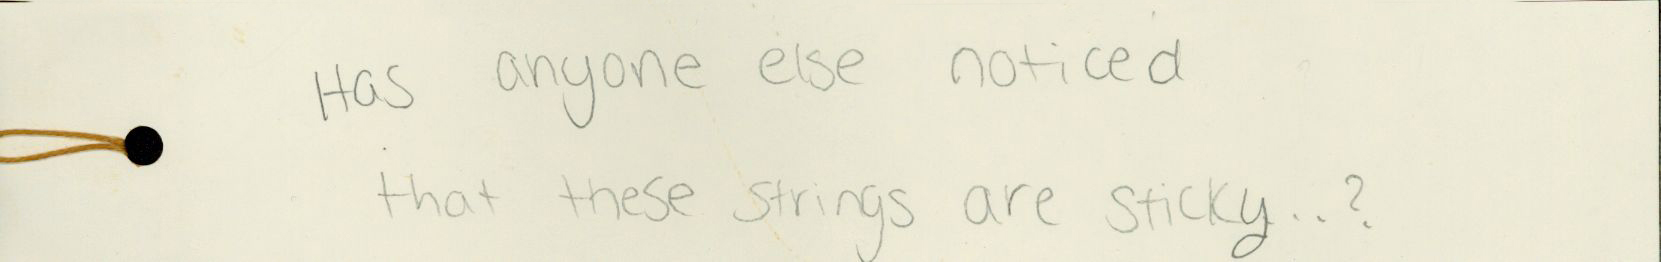 Has anyone else noticed
that these strings are sticky...?